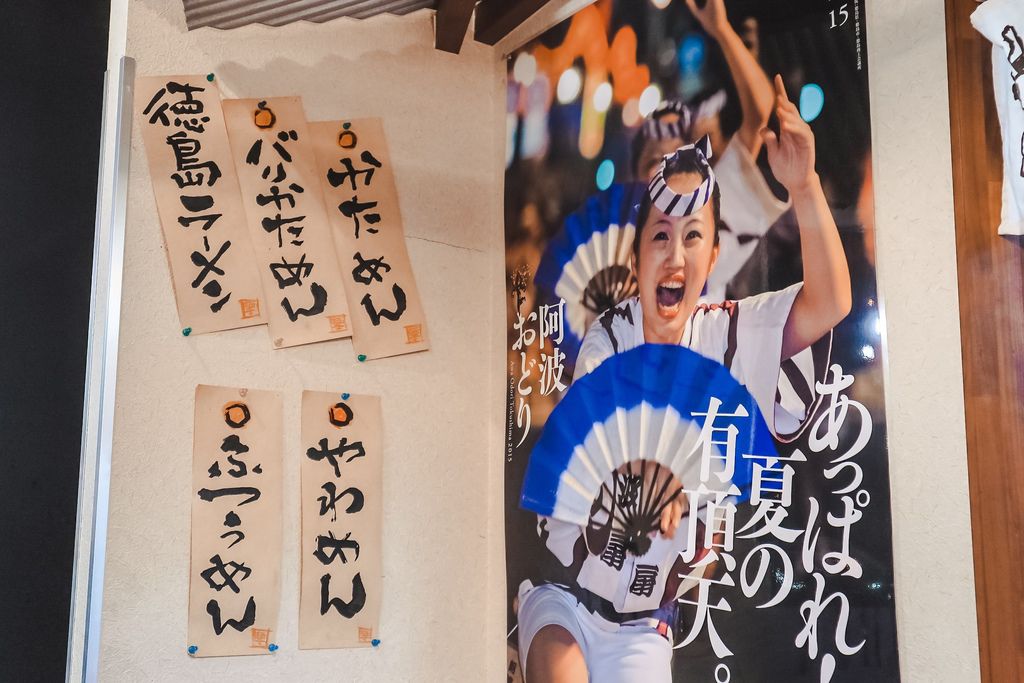 徳島ラーメン
バリかためん
かためん
ふつうめん
やわめん
15
あっぱれ!
夏の
有頂天。
阿波
おどり
Awa Odori Tokushima 2015